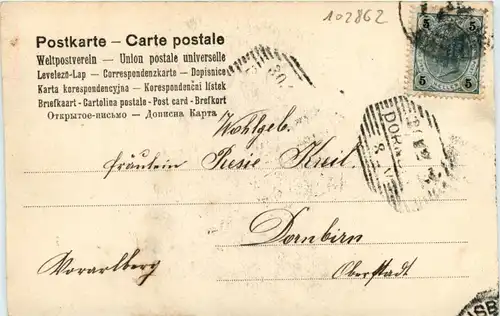 102862
Postkarte – Carte postale
Weltpostverein – Union postale universelle
Levelezn-Lap – Correspondenzkarte – Dopisnice
Karta korespondencyjna – Korespondenční lístek
Briefkaart - Cartolina postale - Post card - Brefkort
Открытое-письмо – Дописна Карта
5 5
5 5
30
DORN
8
Wohlgeb.
Fräulein Rusie
Dornbirn
Vorarlberg
Oberstadt